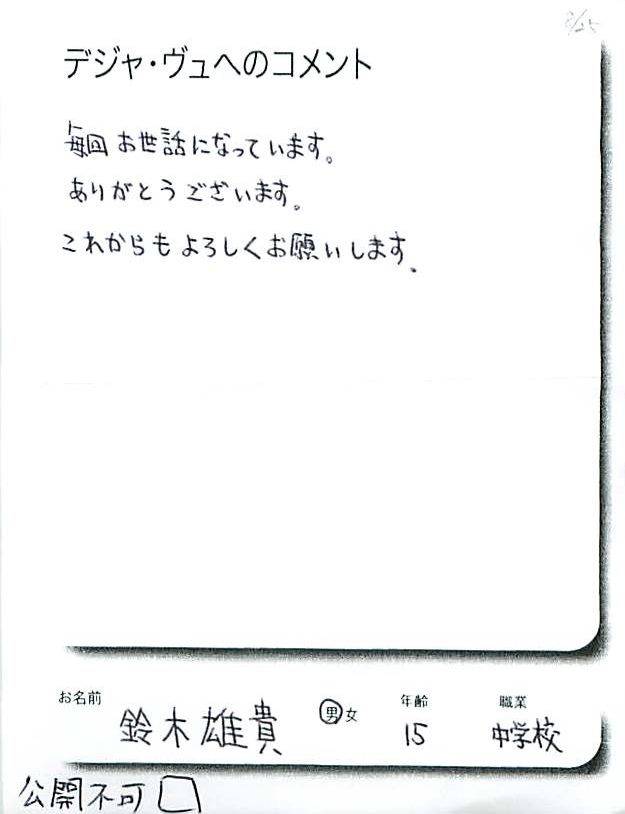 8/25
デジャ・ヴュへのコメント
毎回お世話になっています。
ありがとうございます。
これからもよろしくお願いします。
お名前 鈴木雄貴 男女 年齢 15 職業 中学校
公開不可